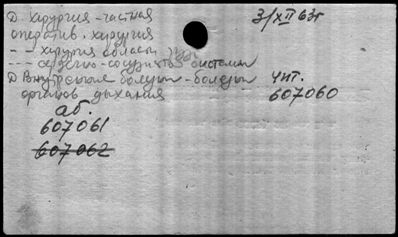 D Хирургия - частная 3/XII 63г
оператив. хирургия
- - хирургия области
- - - сердечно-сосудистой системы
D Внутренние болезни - болезни чит.
органов дыхания 607060
аб.
607061
607062